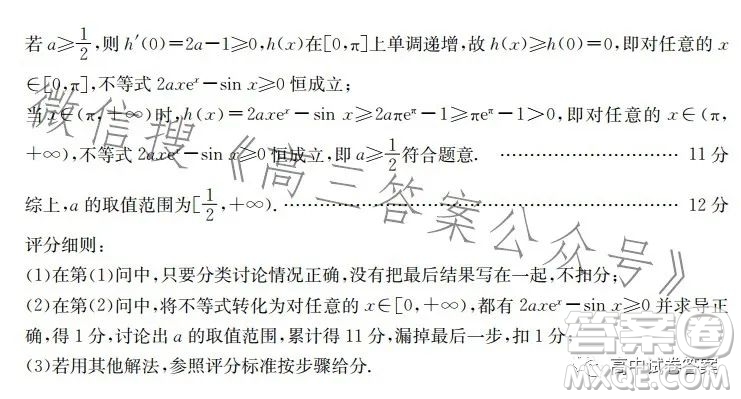 若 a≥1/2,则 h′(0)=2a−1≥0,h(x)在[0,π]上单调递增,故 h(x)≥h(0)=0,即对任意的 x
∈[0,π],不等式 2axeˣ−sin x≥0 恒成立;
当 x∈(π,+∞)时,h(x)=2axeˣ−sin x≥2aπe^π−1≥πe^π−1>0,即对任意的 x∈(π,
+∞),不等式 2axeˣ−sin x≥0 恒成立,即 a≥1/2符合题意. ……………………… 11 分
综上,a 的取值范围为[1/2,+∞). ……………………………………………… 12 分
评分细则:
(1)在第(1)问中,只要分类讨论情况正确,没有把最后结果写在一起,不扣分;
(2)在第(2)问中,将不等式转化为对任意的 x∈[0,+∞),都有 2axeˣ−sin x≥0 并求导正
确,得 1 分,讨论出 a 的取值范围,累计得 11 分,漏掉最后一步,扣 1 分;
(3)若用其他解法,参照评分标准按步骤给分.
微信搜《高三答案公众号》
答案圈
高中试卷答案
MXQE.COM